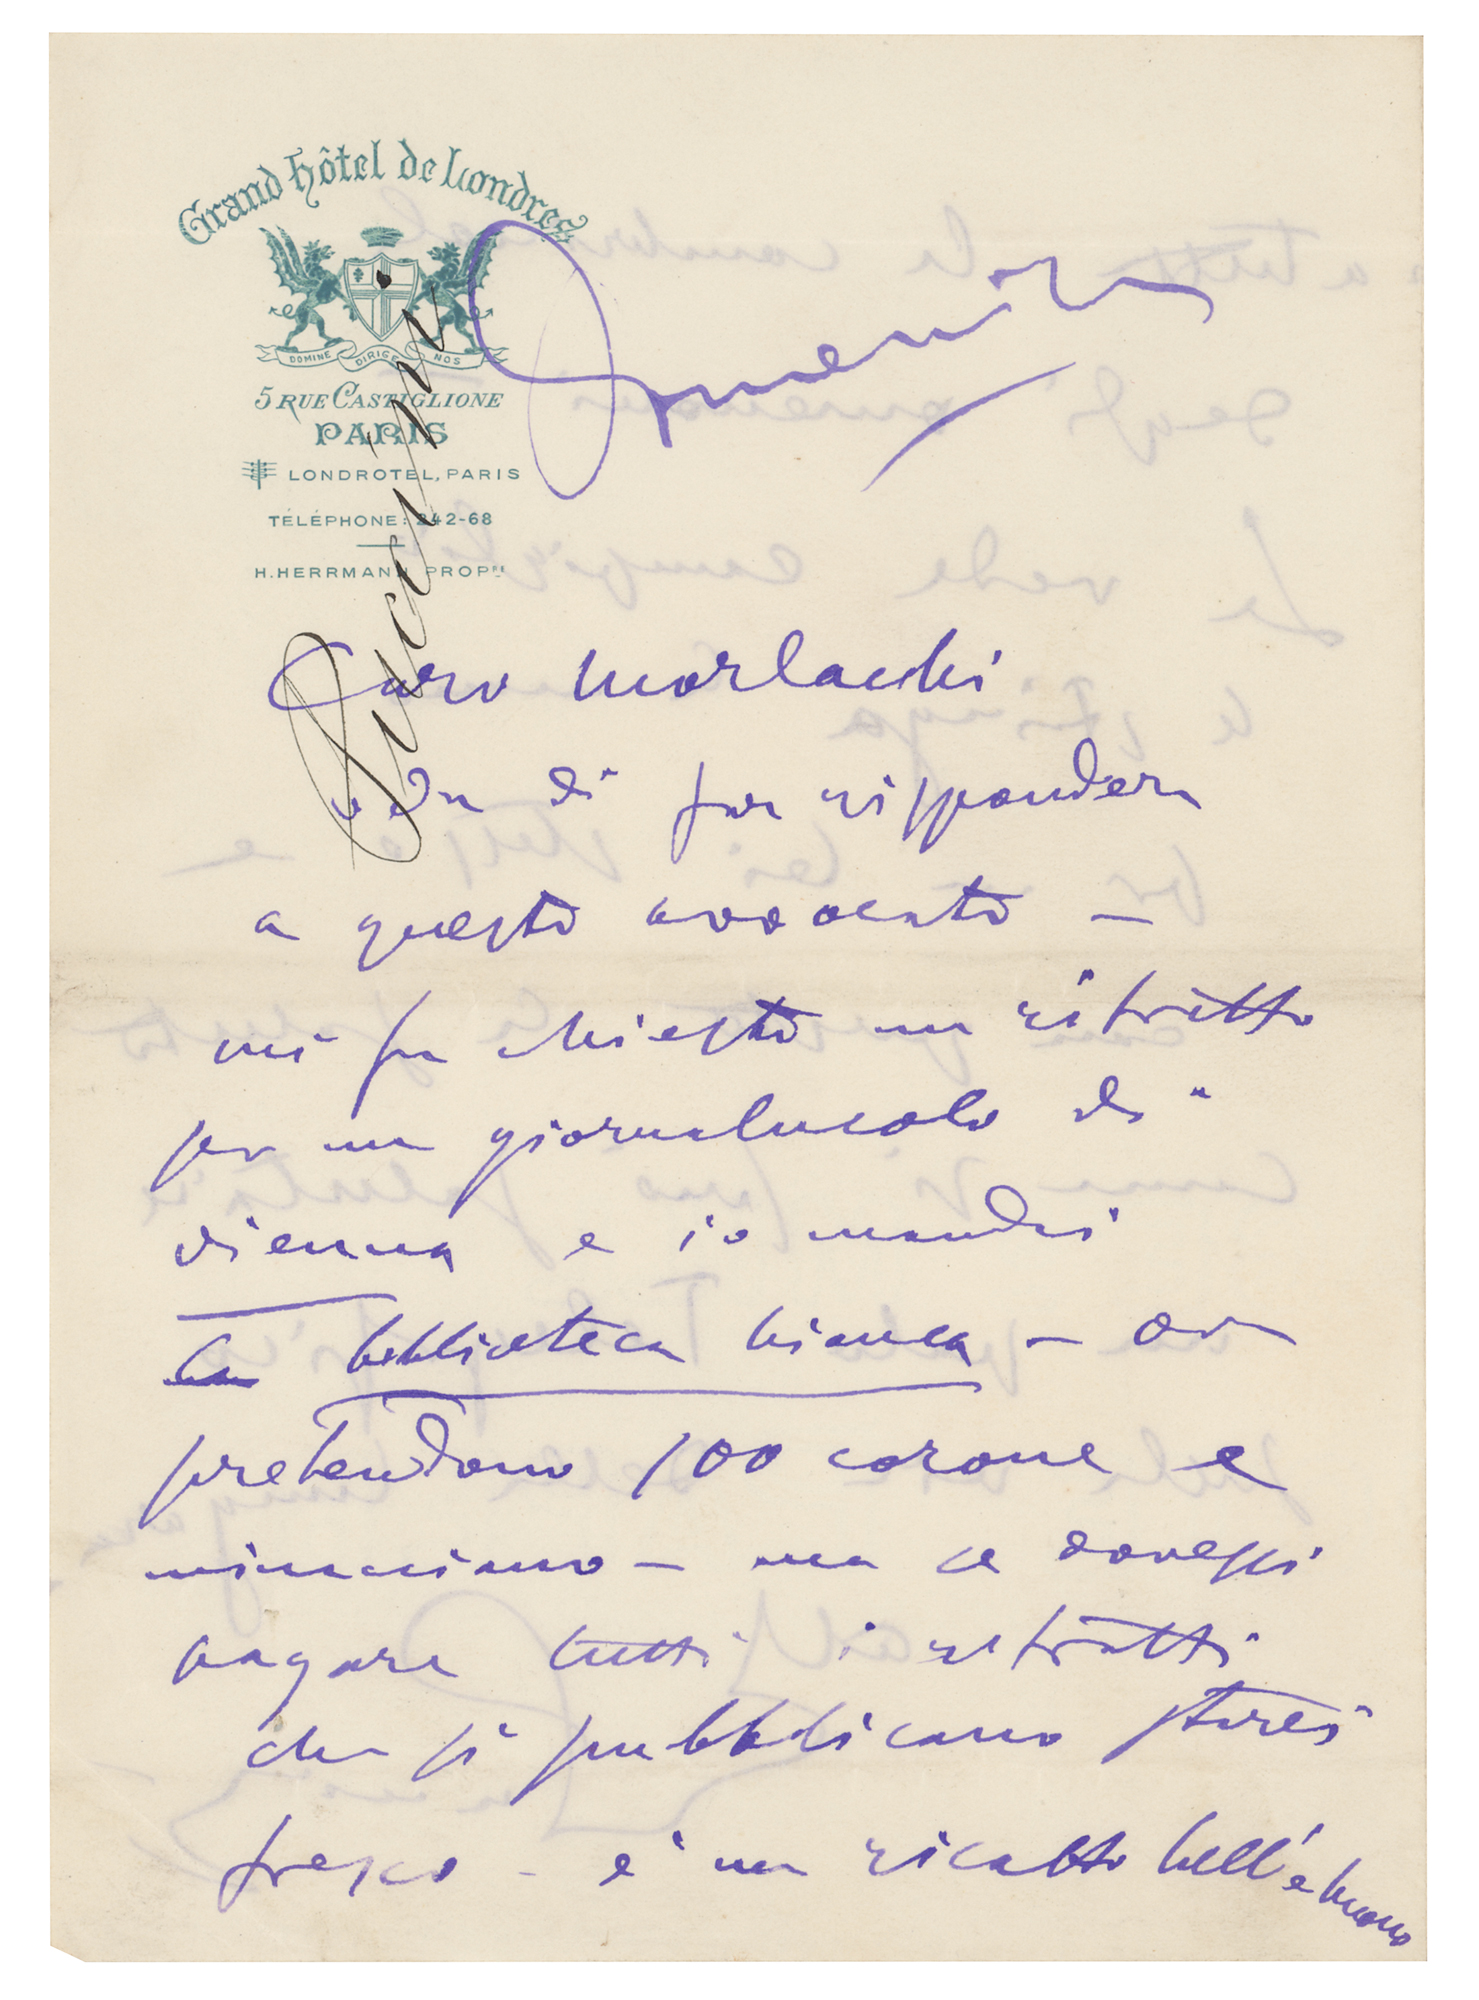 Grand Hôtel de Londres
DOMINE DIRIGE NOS
5 RUE CASTIGLIONE
PARIS
LONDROTEL, PARIS
TÉLÉPHONE: 242-68
H. HERRMANN PROPRE
Puccini
Caro Morlacchi
veda di far rispondere
a questo avvocato —
mi fu chiesto un ritratto
per un giornalucolo di
vienna e io mandai
la biblioteca bianca — ora
pretendono 100 corone e
minacciano — ma se dovessi
pagare tutti i ritratti
che si pubblicano starei
fresco — e' un ricatto bell'e buono